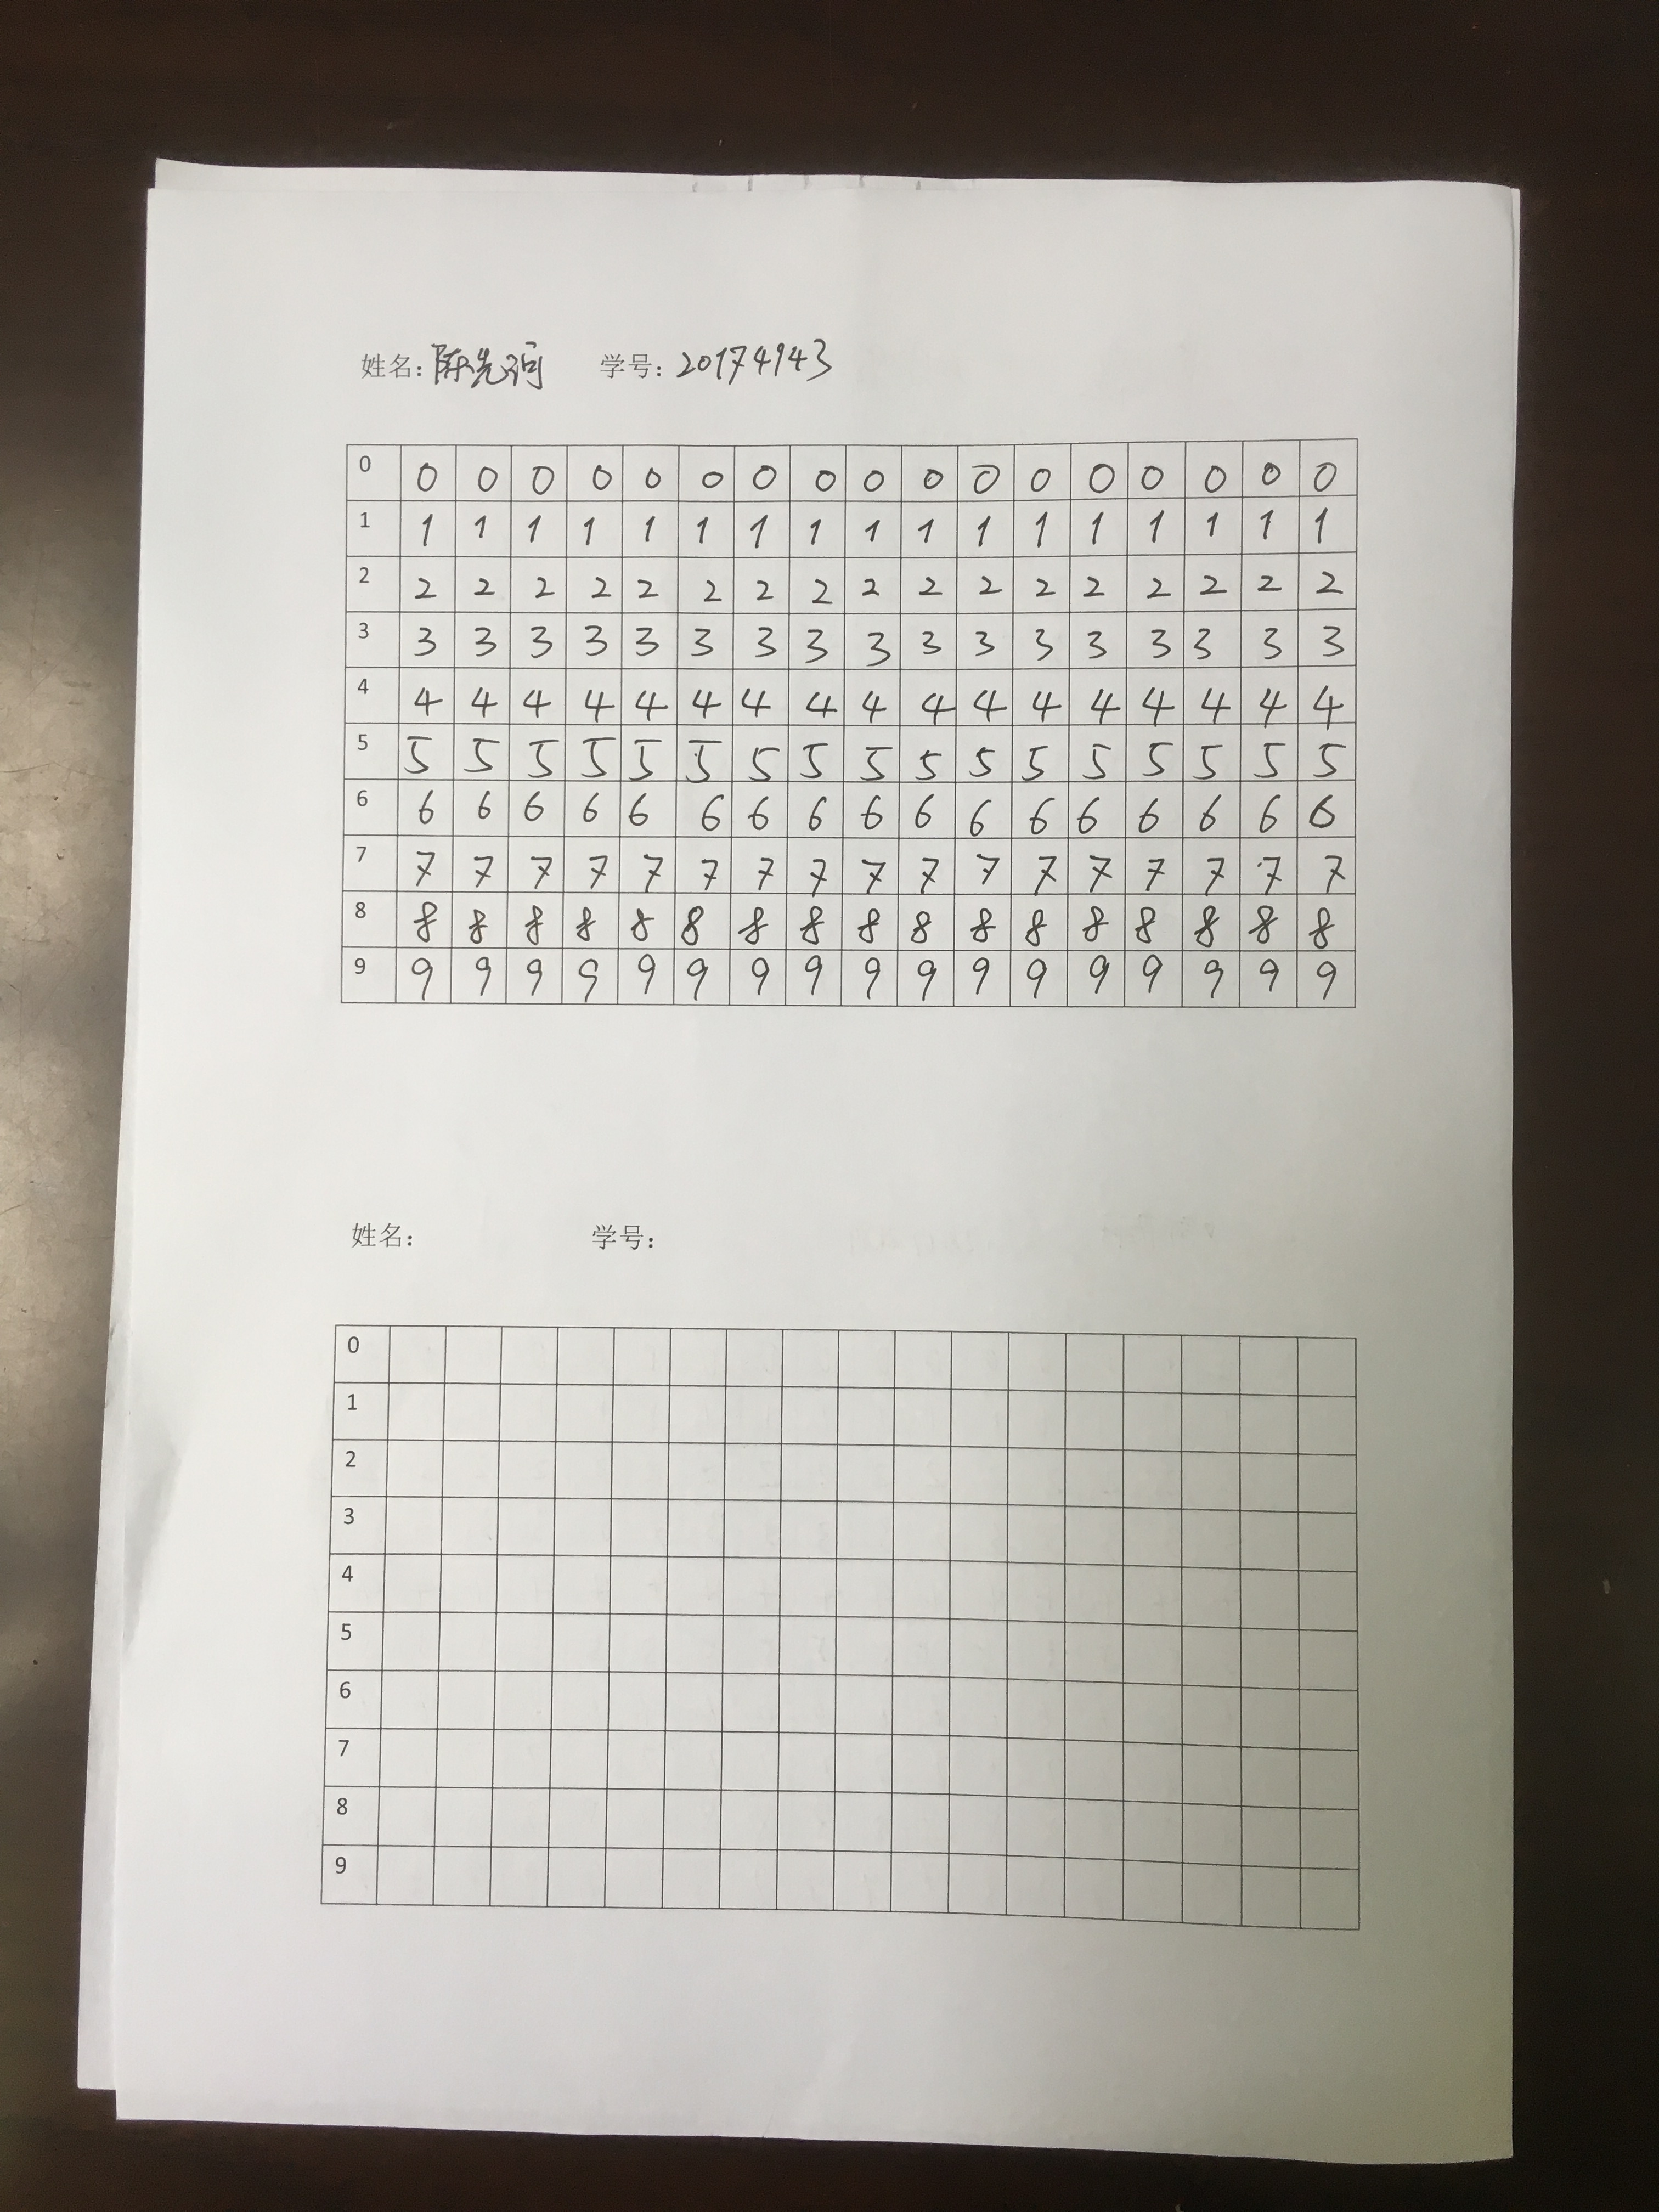 姓名：陈先 学号：20174943
0 0 0 0 0 0 0 0 0 0 0 0 0 0 0 0 0 0
1 1 1 1 1 1 1 1 1 1 1 1 1 1 1 1 1 1
2 2 2 2 2 2 2 2 2 2 2 2 2 2 2 2 2 2
3 3 3 3 3 3 3 3 3 3 3 3 3 3 3 3 3 3
4 4 4 4 4 4 4 4 4 4 4 4 4 4 4 4 4 4
5 5 5 5 5 5 5 5 5 5 5 5 5 5 5 5 5 5
6 6 6 6 6 6 6 6 6 6 6 6 6 6 6 6 6 6
7 7 7 7 7 7 7 7 7 7 7 7 7 7 7 7 7 7
8 8 8 8 8 8 8 8 8 8 8 8 8 8 8 8 8 8
9 9 9 9 9 9 9 9 9 9 9 9 9 9 9 9 9 9
姓名： 学号：
0
1
2
3
4
5
6
7
8
9